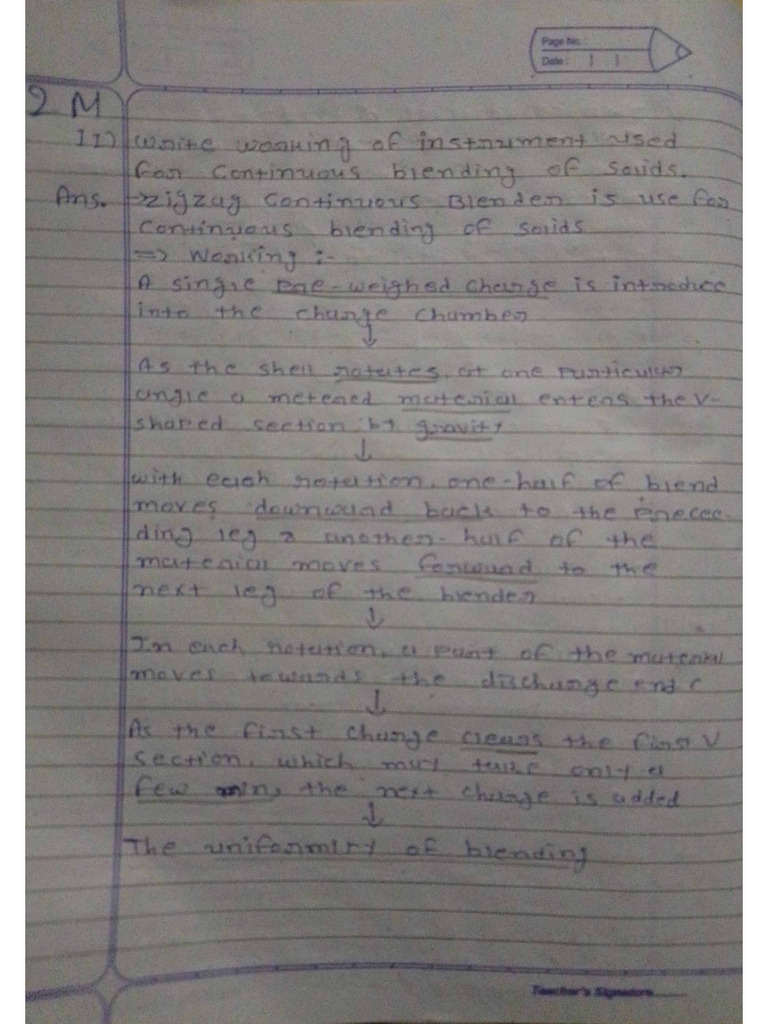 Page No. :
Date :
2 M
II) Write working of instrument used
for Continuous blending of solids.
Ans. → zigzag Continuous Blender is use for
continuous blending of solids
=> Working :-
A single pre-weighed charge is introduce
into the charge chamber
↓
As the shell rotates, at one particular
angle a metered material enters the V-
shaped section by gravity
↓
with each rotation, one-half of blend
moves downward back to the prece-
ding leg & another-half of the
material moves forward to the
next leg of the blender
↓
In each rotation, a part of the material
moves towards the discharge end
↓
As the first charge clears the first V
section, which may take only a
few min, the next charge is added
↓
The uniformity of blending
Teacher's Signature